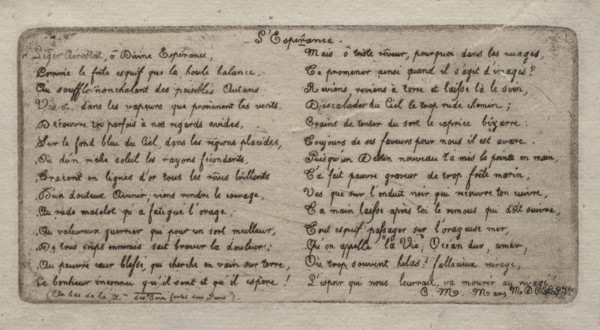 L'Espérance.
Léger Aérostat, ô Divine Espérance,
Comme le frêle esquif que la houle balance
Au souffle nonchalant des paisibles Autans
dans les vapeurs que promènent les vents.
Découvre toi parfois à nos regards avides,
Sur le fond bleu du Ciel, dans les régions placides,
Où d'un riche soleil les rayons fécondants,
Tracent en lignes d'or tous les rêves brillants
D'un douteux Avenir; viens rendre le courage,
Au rude matelot qu'a fatigué l'orage;
Au valeureux guerrier qui pour un sort meilleur,
De tous ennemis sait braver la douleur;
Au pauvre cœur blessé, qui cherche en vain sur terre,
Le bonheur inconnu qu'il sent et qu'il espère!
(Au bas de la
Mais ô triste rêveur, pourquoi dans les nuages,
Te promener ainsi quand il s'agit d'images?
Reviens, reviens à terre et laisse là le soin,
D'escalader du Ciel le trop rude chemin;
Crains de tenter du sort le caprice bizarre.
Toujours de ses faveurs pour nous il est avare.
Puisqu'un Destin nouveau t'a mis la pointe en main,
T'a fait pauvre graveur de trop frêle marin,
Vas que sur l'enduit noir qui recouvre ton cuivre,
Ta main laisse après toi le remous qui doit suivre,
Tout esquif passager sur l'orageuse mer,
Qu'on appelle la Vie; Océan dur, amer,
Où trop souvent hélas! fallacieux mirage,
L'espoir qui nous leurrait va mourir au rivage!
C. M.